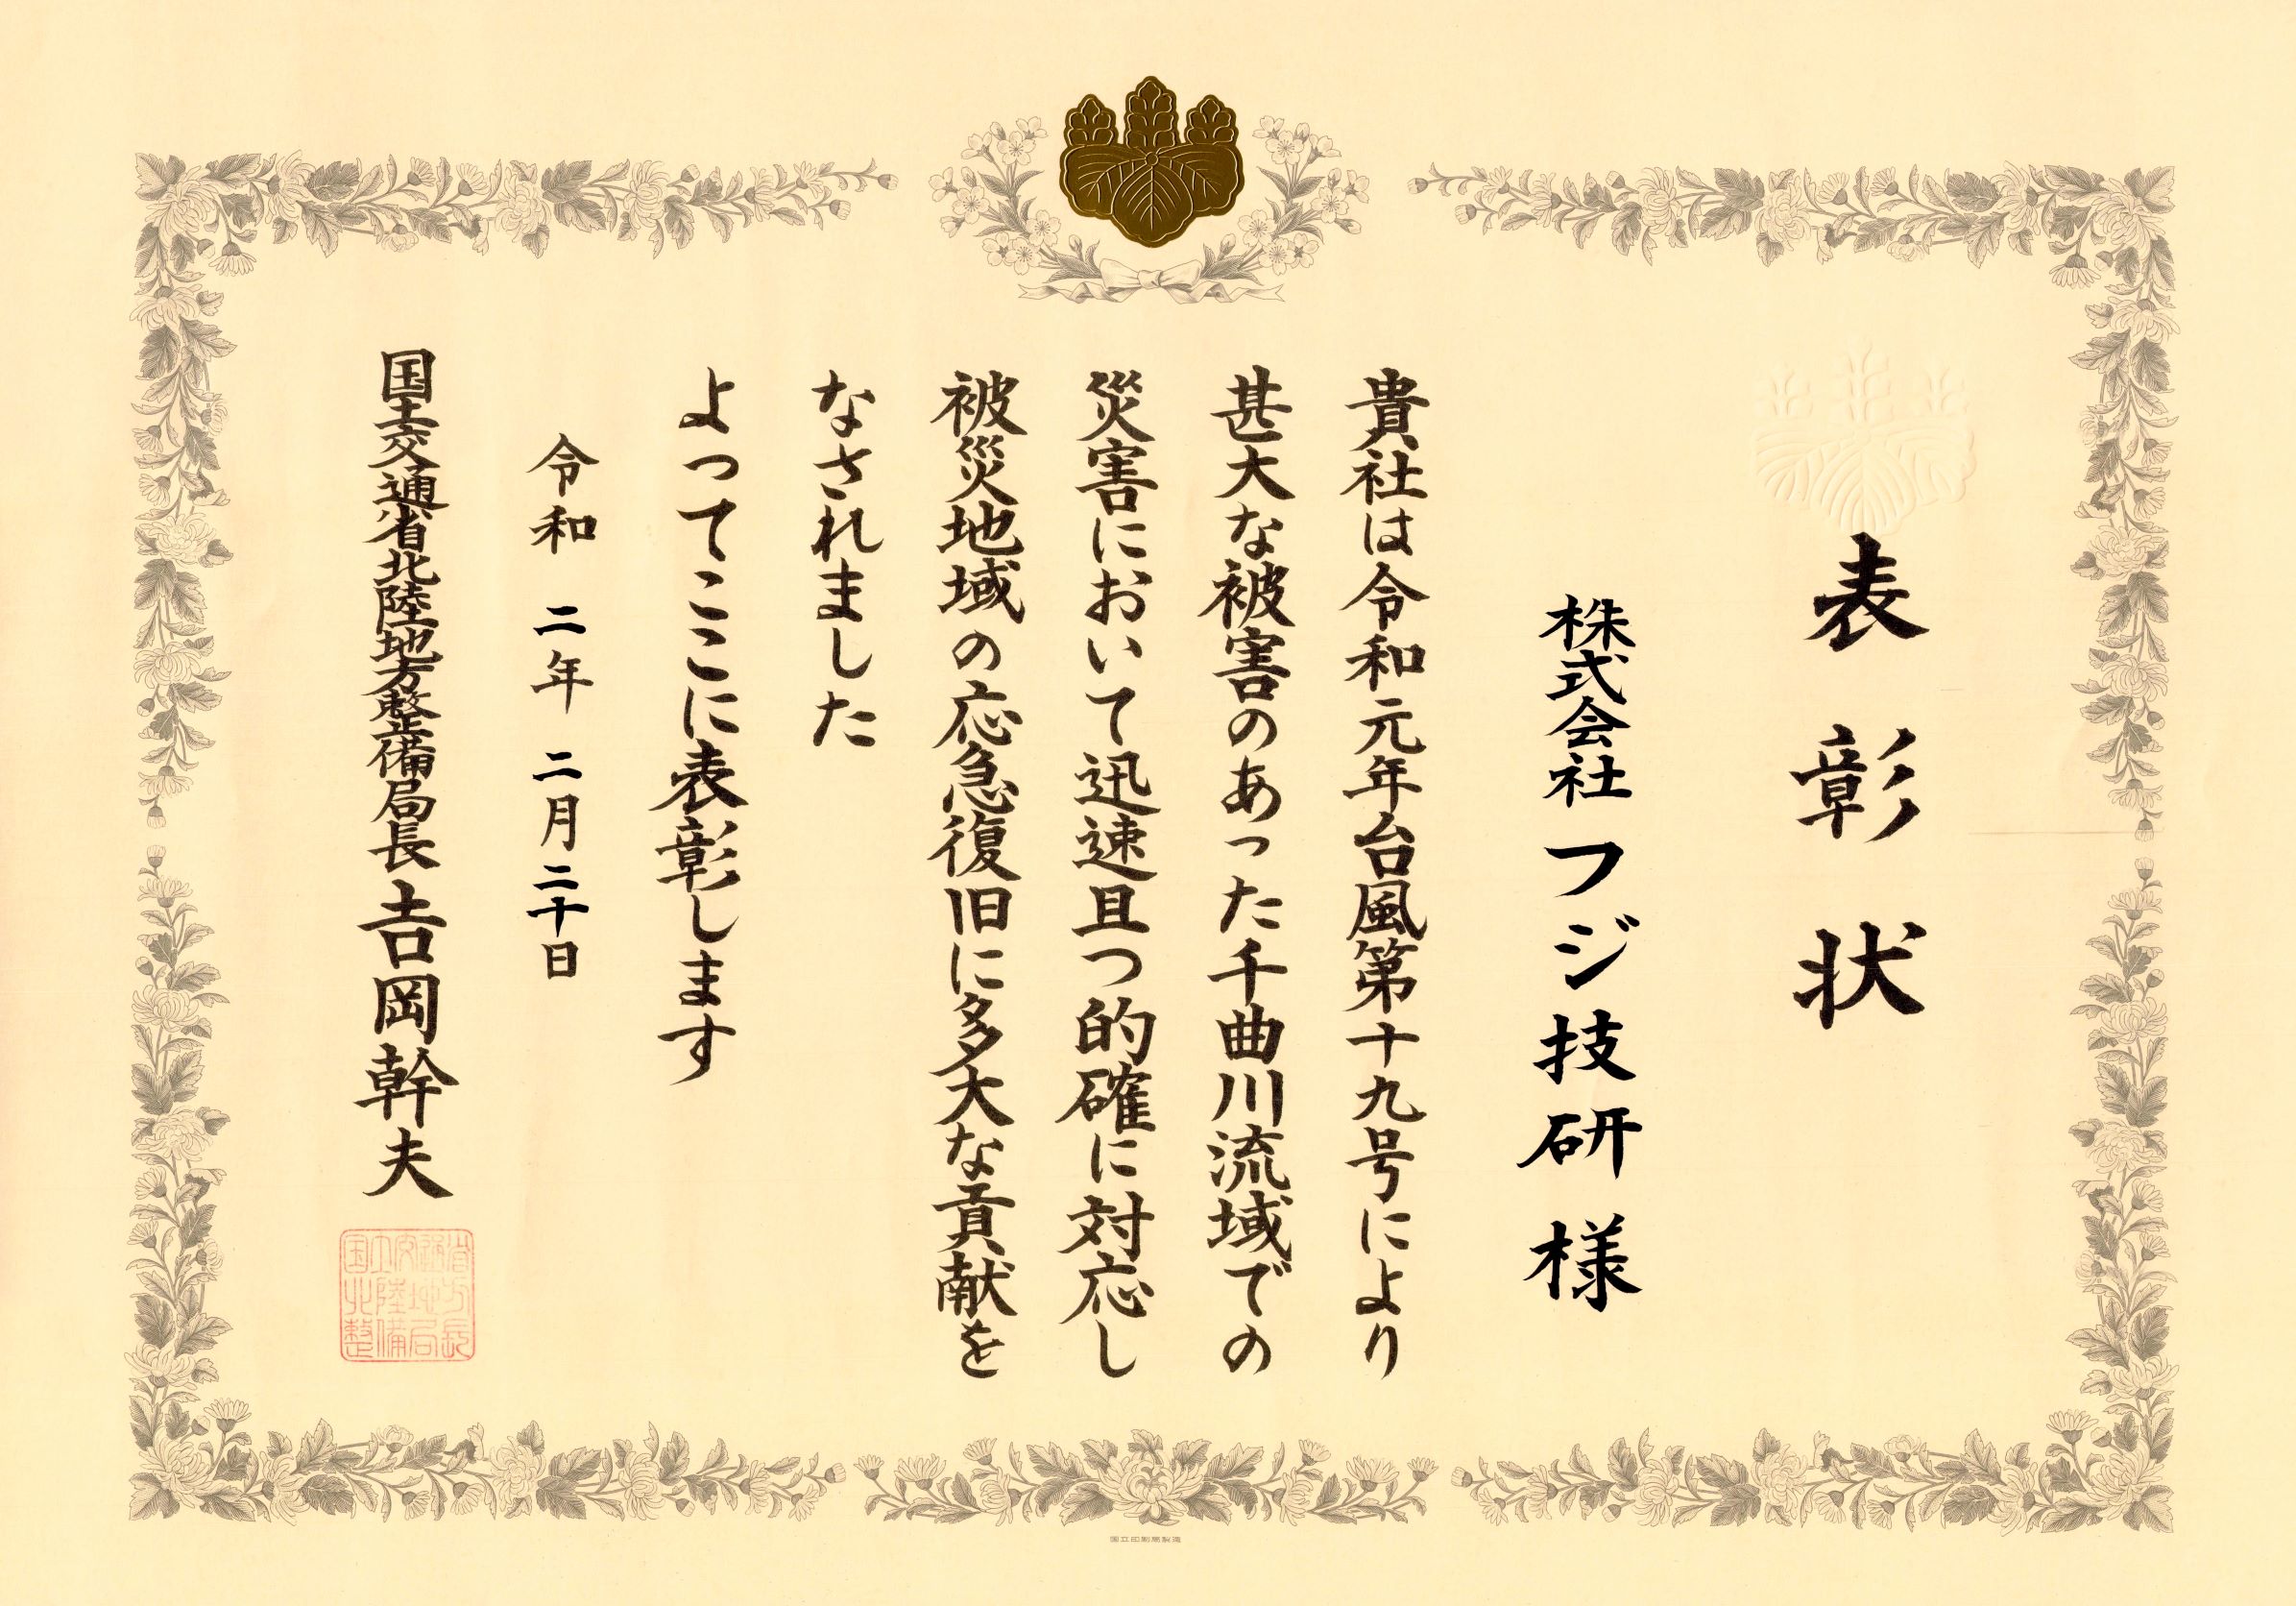 表彰状
株式会社フジ技研様
貴社は令和元年台風第十九号により
甚大な被害のあった千曲川流域での
災害において迅速且つ的確に対応し
被災地域の応急復旧に多大な貢献を
なされました
よってここに表彰します
令和二年二月二十日
国土交通省北陸地方整備局長吉岡幹夫
国土交通省
北陸地方
整備局長
国立印刷局製造